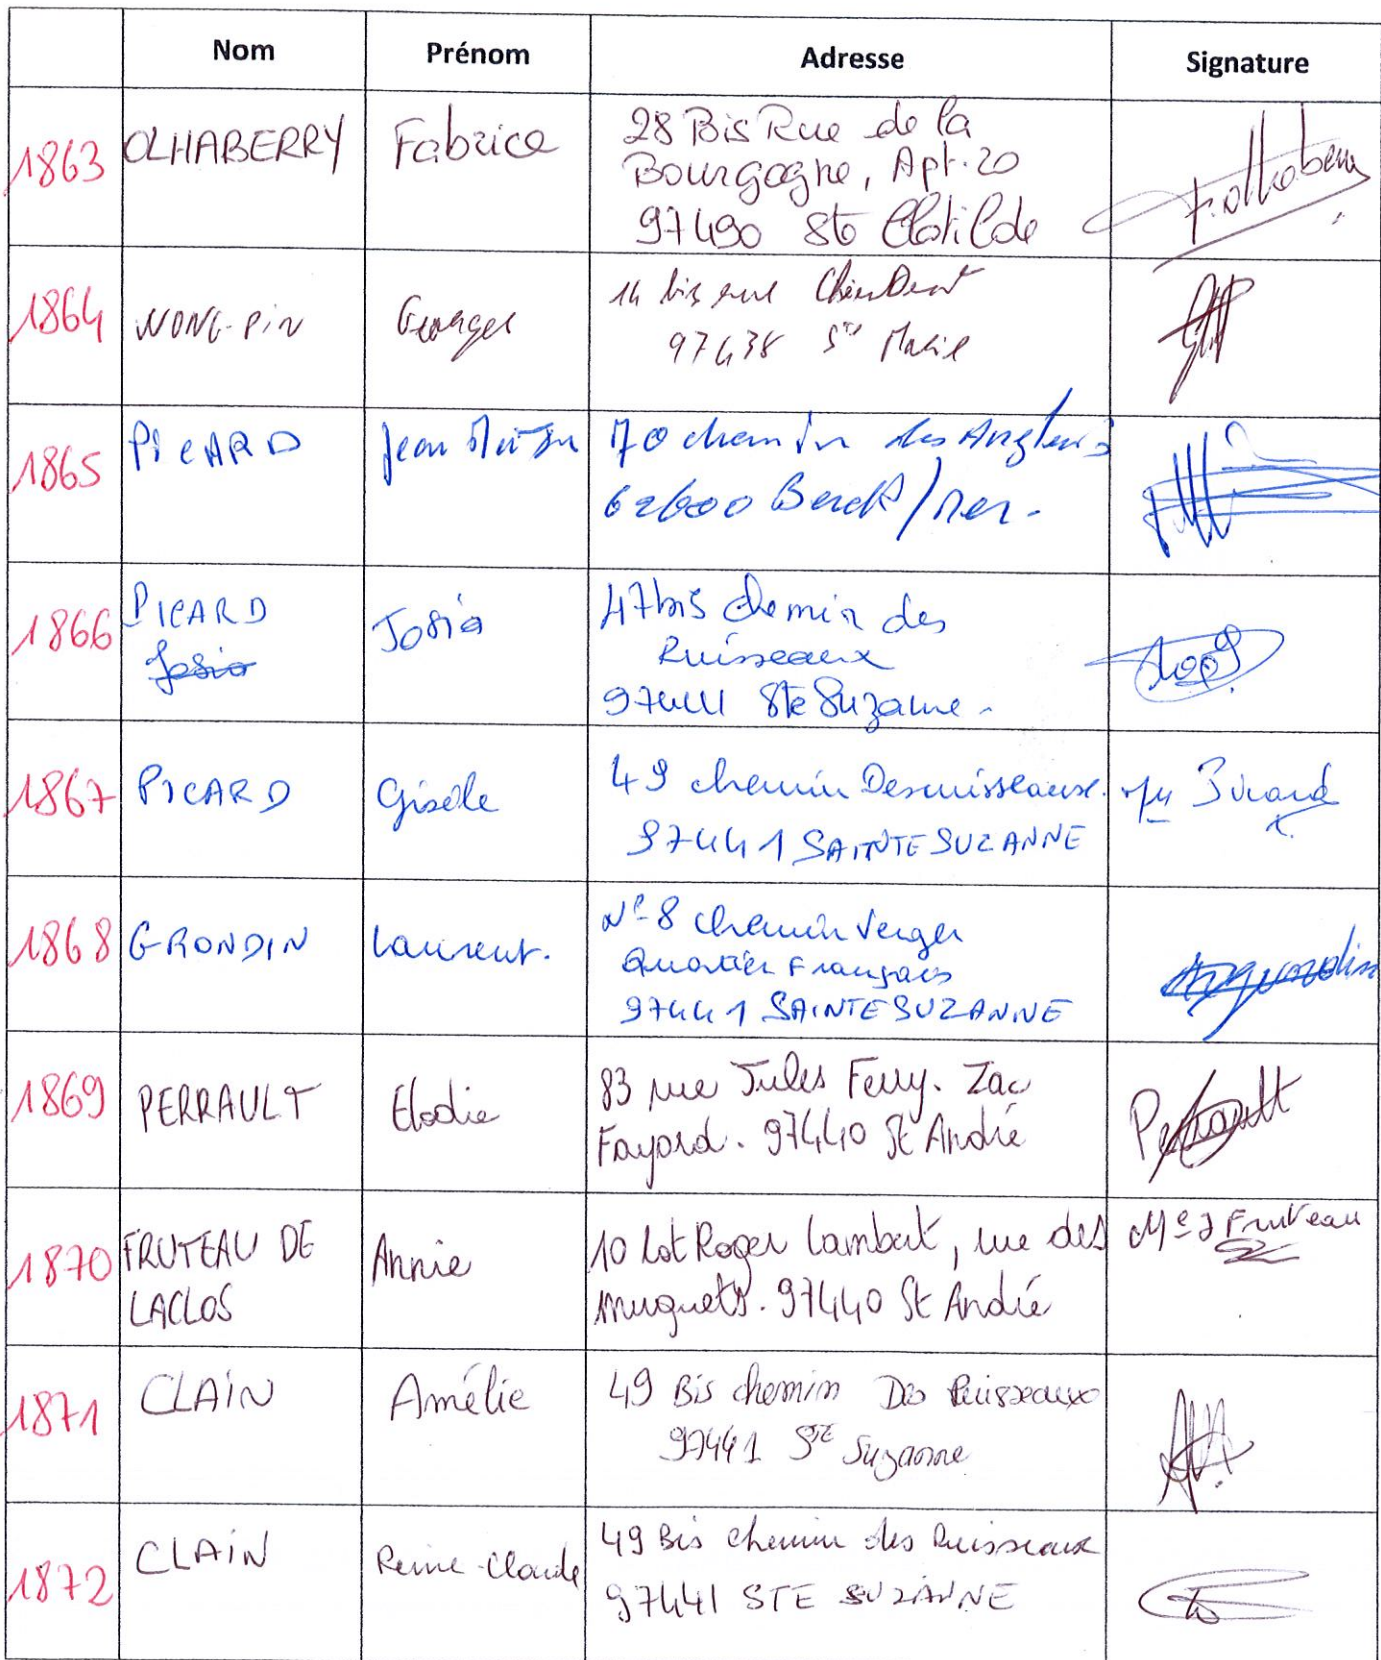 Nom Prénom Adresse Signature
1863 OLHABERRY Fabrice 28 Bis Rue de la
Bourgogne, Apt. 20
97490 Ste Clotilde
1864 WONG-PIN Georges 14 bis rue Chiendent
97438 Ste Marie
1865 PICARD Jean 70 chemin des Anglais
62600 Berck/Mer.
1866 PICARD Josia 47bis chemin des
Josia Ruisseaux
97441 Ste Suzanne.
1867 PICARD Gisèle 49 chemin Desruisseaux.
97441 SAINTE SUZANNE
1868 GRONDIN Laurent. N° 8 chemin Verger
Quartier Français
97441 SAINTE SUZANNE
1869 PERRAULT Elodie 83 rue Jules Ferry. Zac Perrault
Fayard. 97440 St André
1870 FRUTEAU DE Annie 10 Lot Roger Lambert, rue des Fruteau
LACLOS muguets. 97440 St André
1871 CLAIN Amélie 49 Bis chemin Des Ruisseaux
97441 STE Suzanne
1872 CLAIN Reine-Claude 49 Bis chemin des Ruisseaux
97441 STE SUZANNE